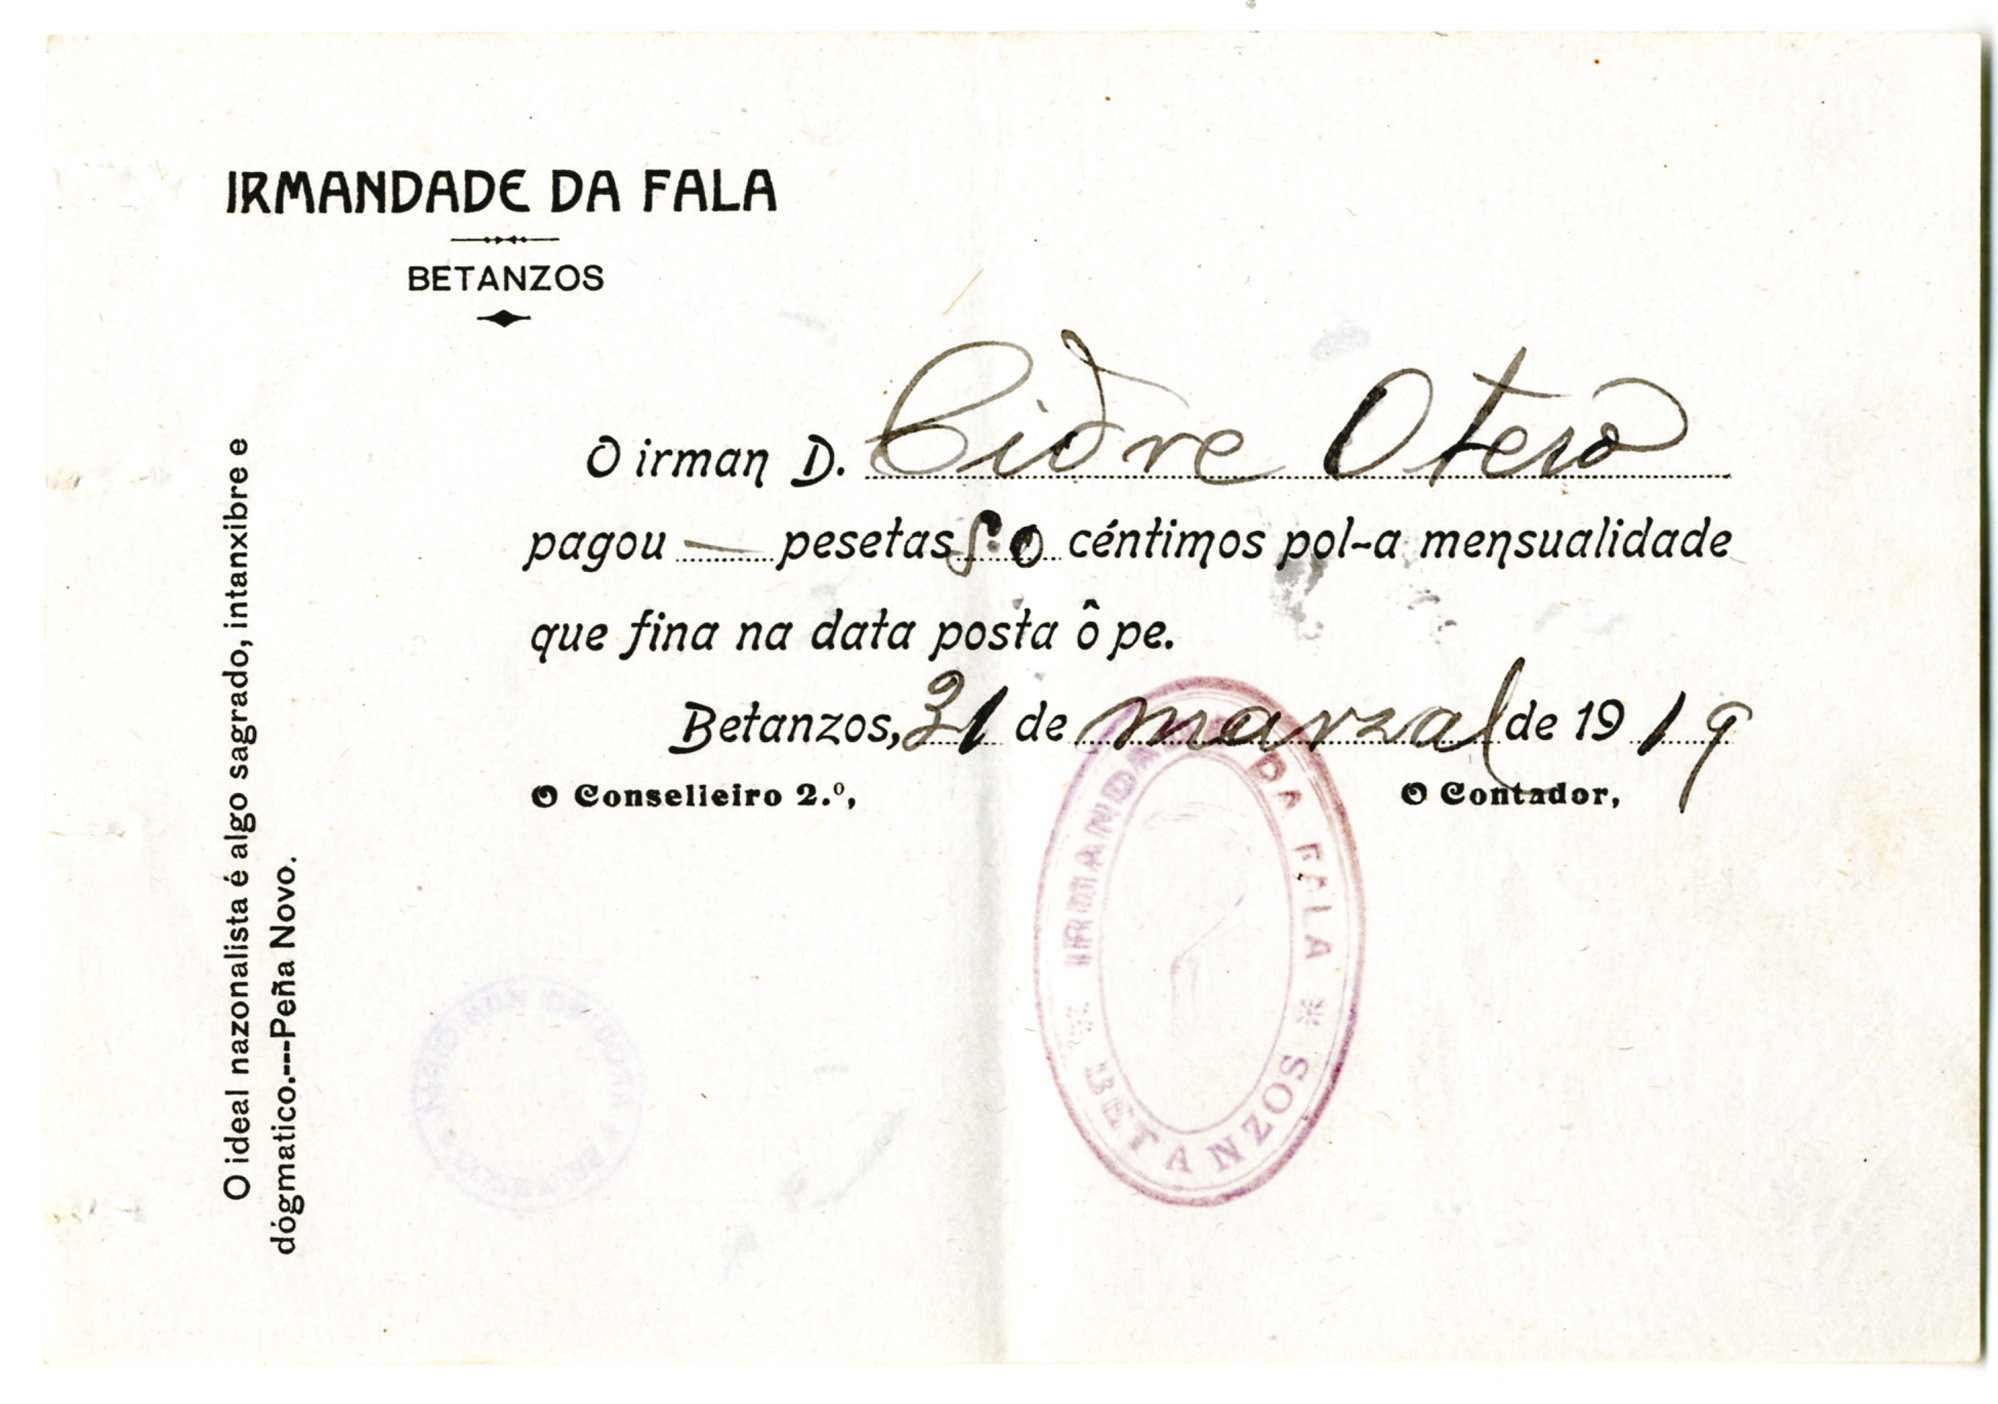 IRMANDADE DA FALA
BETANZOS
O irman D. Cidre Otero
pagou — pesetas 50 céntimos pol-a mensualidade
que fina na data posta ô pe.
Betanzos, 31 de marzal de 1919
O Conselleiro 2.º, O Contador,
O ideal nazonalista é algo sagrado, intanxibre e
dógmatico.---Peña Novo.
IRMANDADE DA FALA
* BETANZOS *